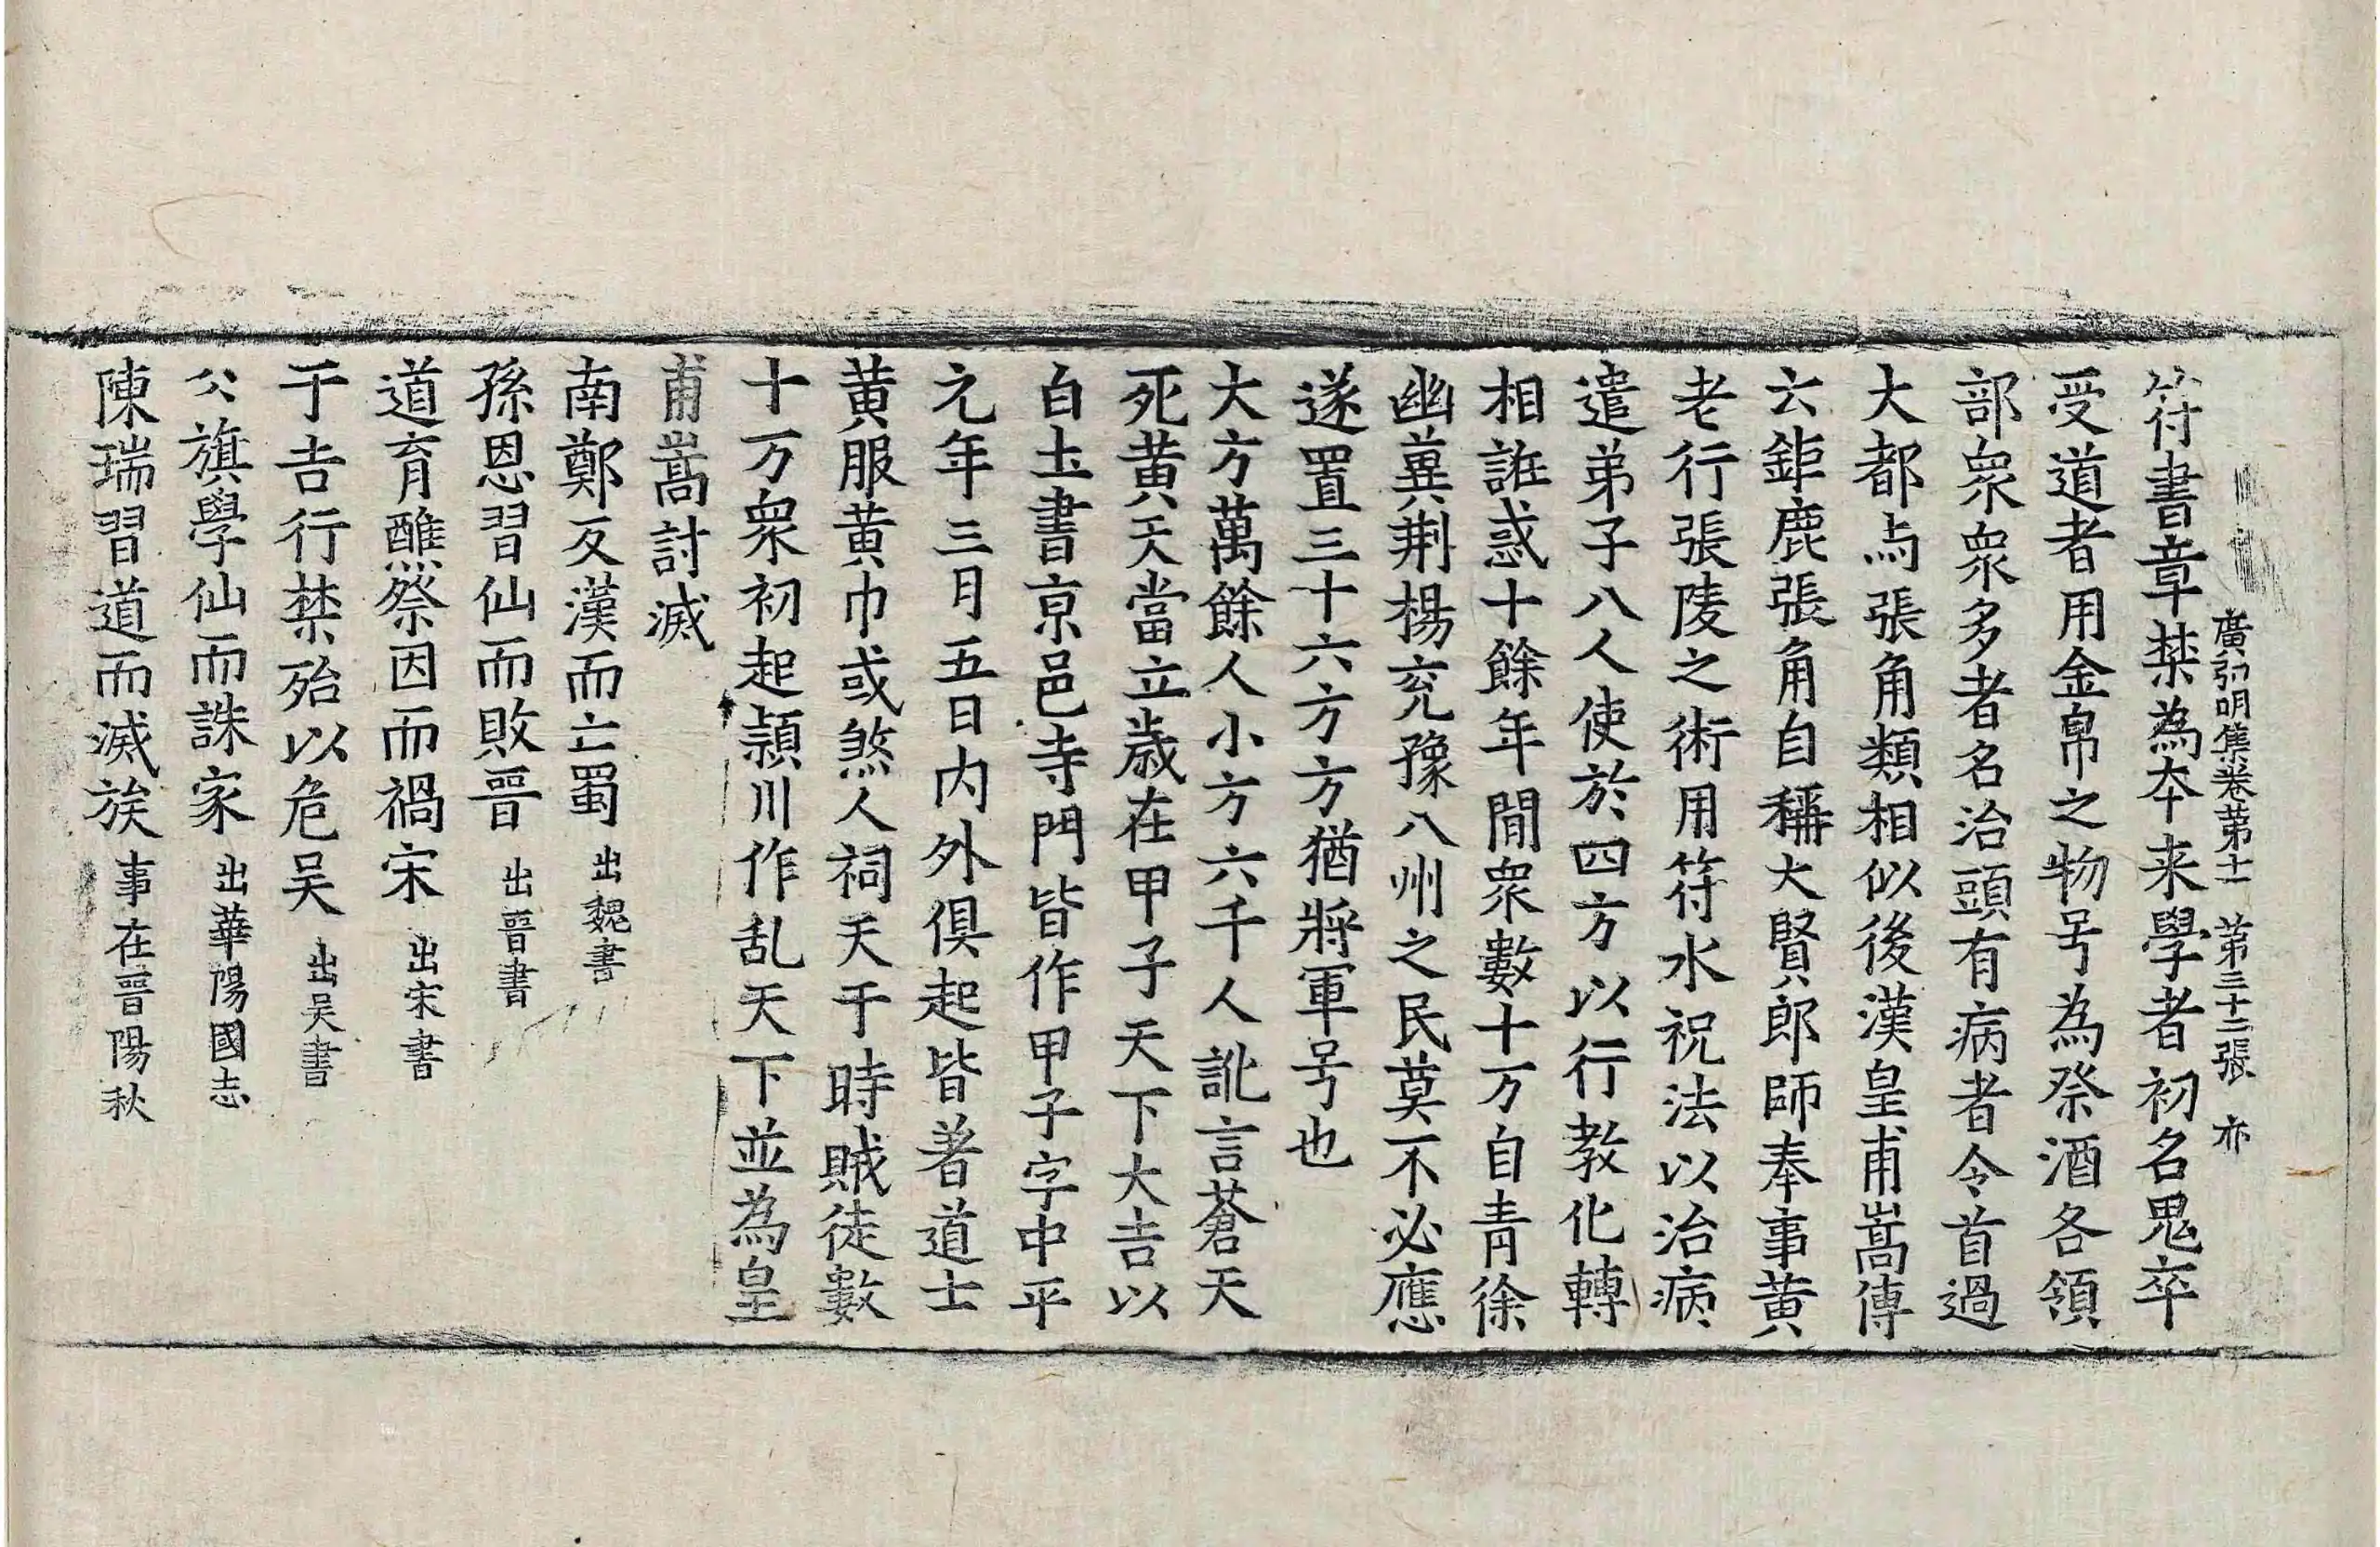 廣弘明集卷第十一 第三十二張 亦
符書章禁為本来學者初名鬼卒
受道者用金帛之物号為祭酒各領
部衆衆多者名治頭有病者令首過
大都与張角類相似後漢皇甫嵩傳
云鉅鹿張角自稱大賢郎師奉事黄
老行張陵之術用符水祝法以治病
遣弟子八人使於四方以行教化轉
相誑惑十餘年閒衆數十万自青徐
幽蓂荆楊兖豫八州之民莫不必應
遂置三十六方方猶將軍号也
大方萬餘人小方六千人訛言蒼天
死黄天當立歳在甲子天下大吉以
白圡書京邑寺門皆作甲子字中平
元年三月五日内外俱起皆著道士
黄服黄巾或煞人祠天于時賊徒數
十万衆初起頴川作乱天下並為皇
甫嵩討滅
南鄭反漢而亡蜀 出魏書
孫恩習仙而敗晉 出晉書
道育醮祭因而禍宋 出宋書
于吉行禁殆以危吴 出吴書
公旗學仙而誅家 出華陽國志
陳瑞習道而滅族 事在晉陽秋